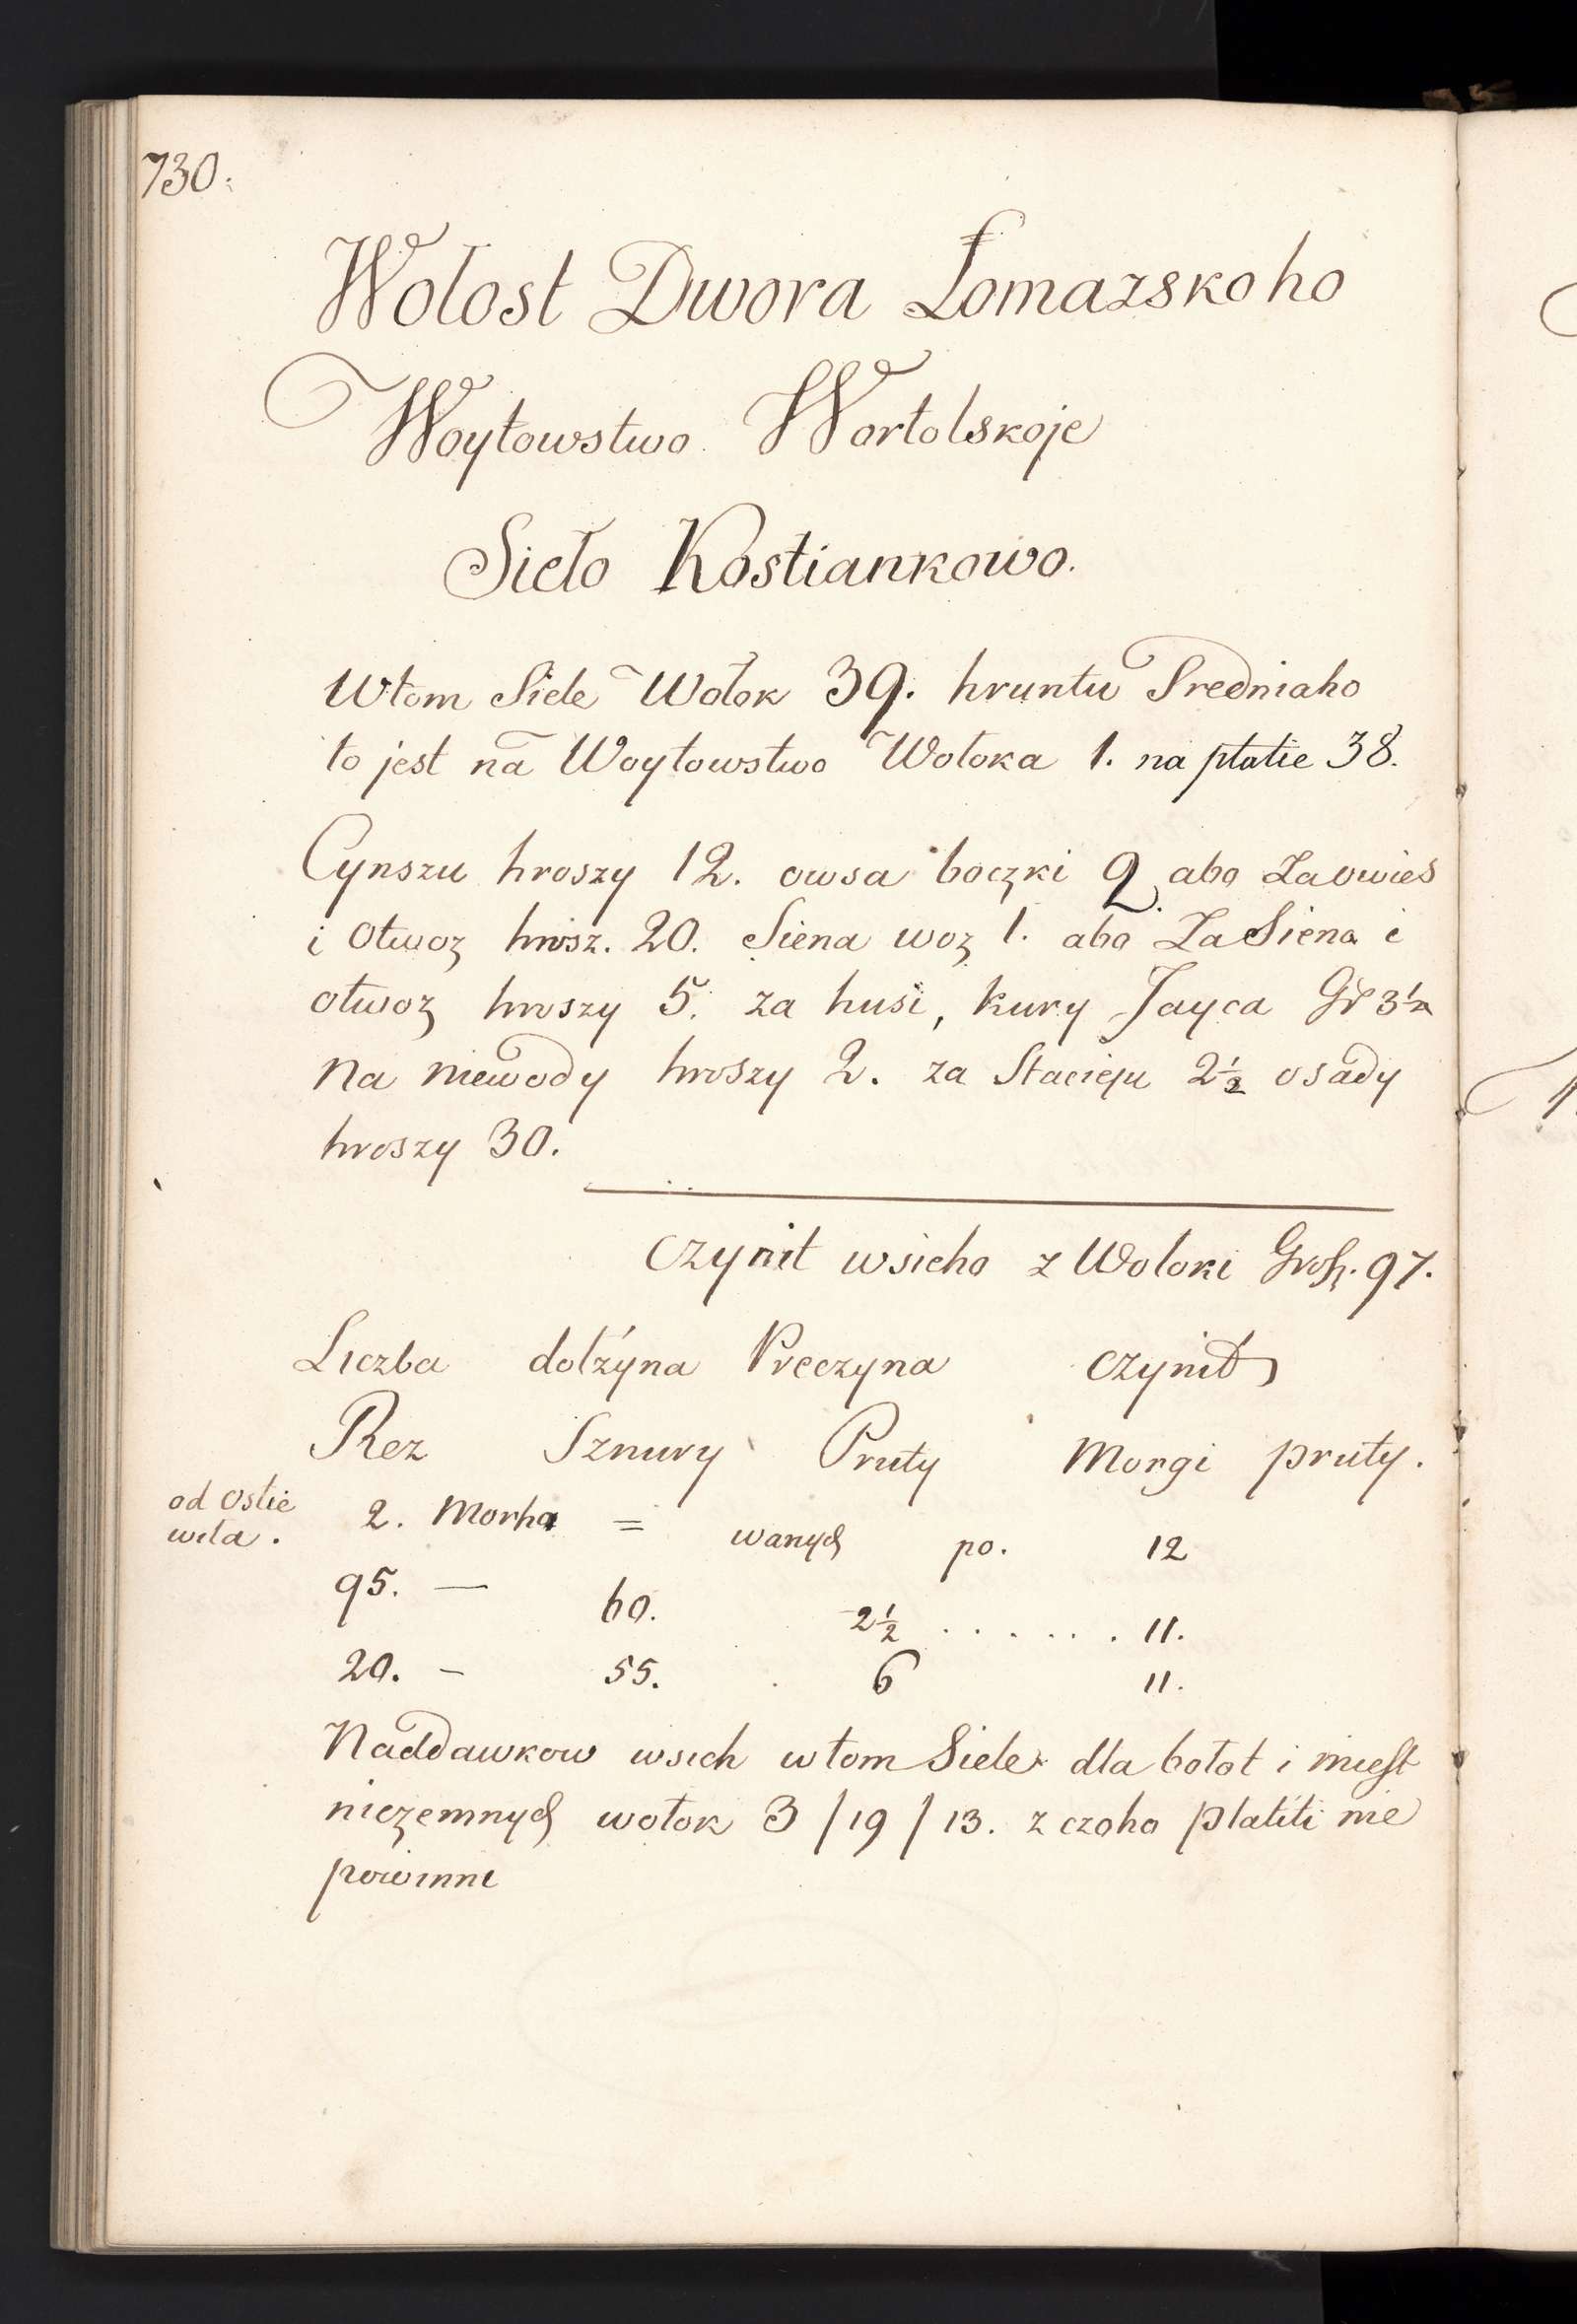 730.
Wolost Dwora Łomazskoho
Woytowstwo Wortolskoje
Sieło Kostiankowo.
Wtom Siele Wołok 39. hruntu Sredniaho
to jest na Woytowstwo Wołoka 1. na płatie 38.
Cynszu hroszy 12. owsa boczki 2. abo Zaowies
i otwoz hrosz. 20. Siena woz 1. abo Za Siena i
otwoz hroszy 5. za husi, kury Jayca Gr 3½
na niewody hroszy 2. za Stacieju 2½ osady
hroszy 30.
czynit wsieho z Wołoki Grosz. 97.
Liczba dołżyna Preczyna czynit
Rez Sznury Pruty Morgi pruty.
od Ostie
wila.
2. Morho = wanych po. 12
95. — 60. 2½ . . . . . . 11.
20. — 55. 6 11.
Naddawkow wsich wtom Siele dla bołot i miest
niezemnych wołok 3 / 19 / 13. z czoho płatiti nie
powinni